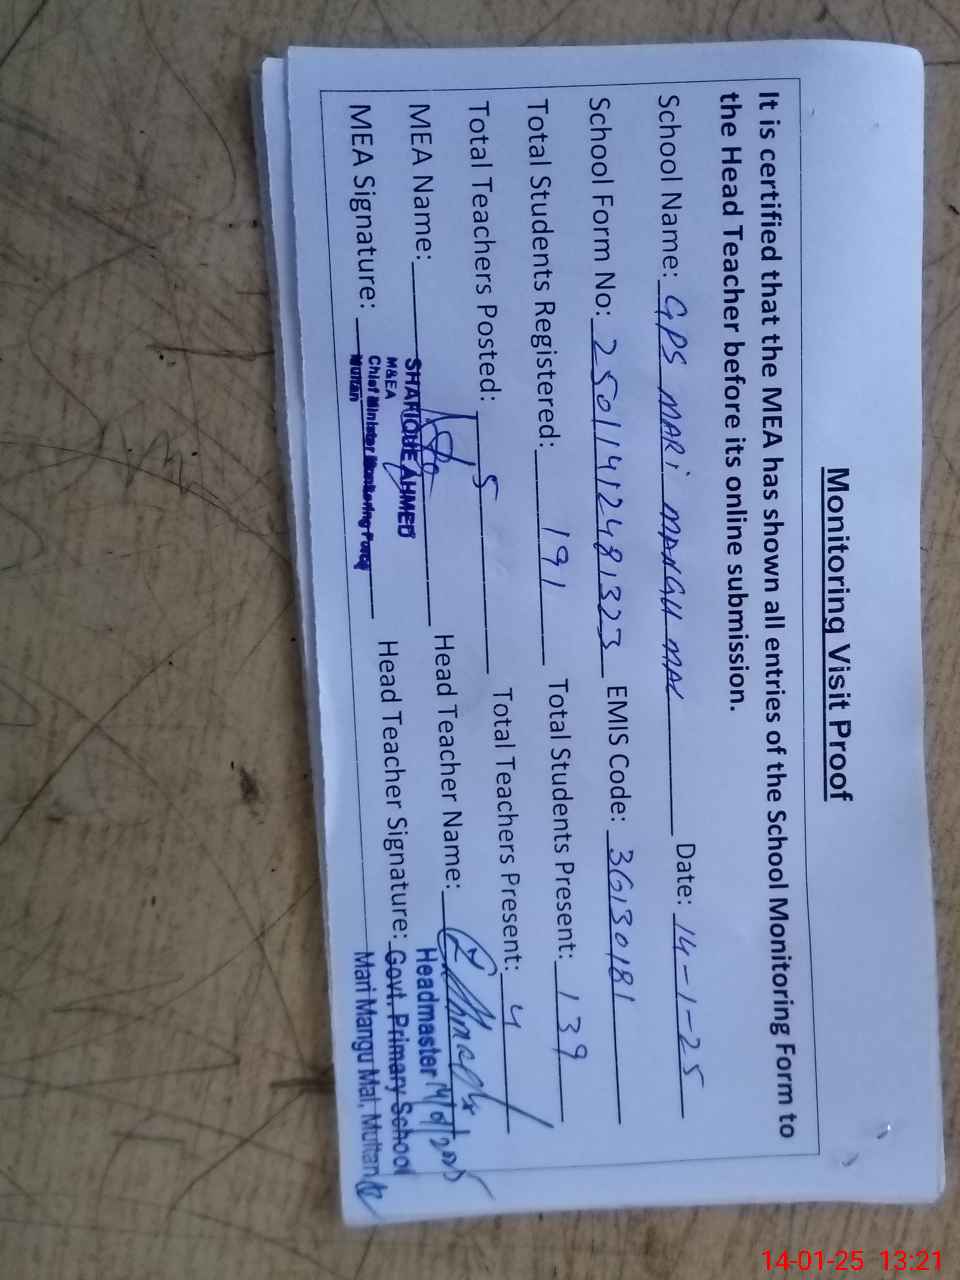 Monitoring Visit Proof
It is certified that the MEA has shown all entries of the School Monitoring Form to
the Head Teacher before its online submission.
School Name: GPS MARI MANGU MAL Date: 14-1-25
School Form No: 2501141248,323 EMIS Code: 36130181
Total Students Registered: 191 Total Students Present: 139
Total Teachers Posted: 5 Total Teachers Present: 4
MEA Name: Head Teacher Name:
SHARIQUE AHMED
M&EA
Chief Minister Monitoring Force
Multan
MEA Signature: Head Teacher Signature:
Headmaster 14/01/2025
Govt. Primary School
Mari Mangu Mal, Multan
14-01-25 13:21